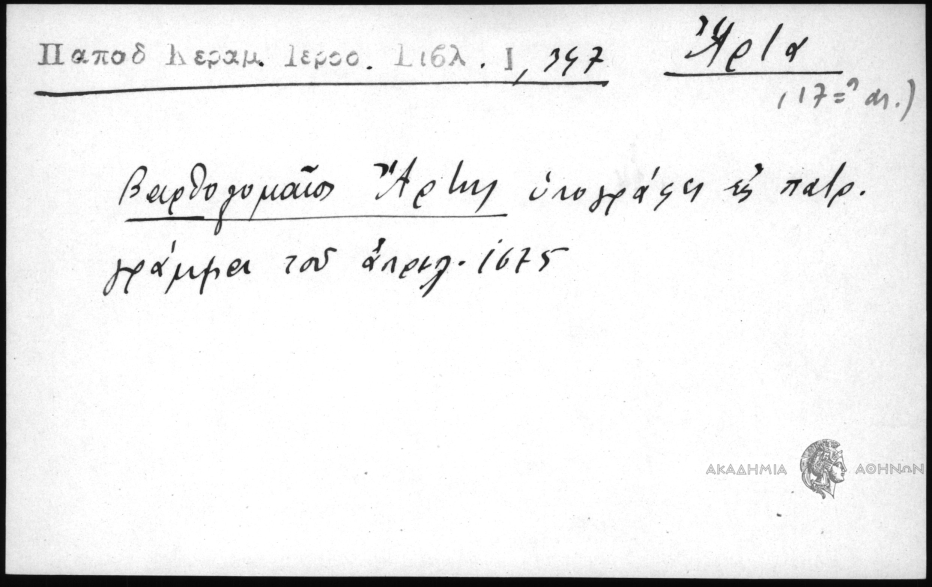 Παπαδ Κεραμ. Ιεροσ. Βιβλ. I, 347
Ἄρτα
(17=ος αι.)
Βαρθολομαῖος Ἄρτης ὑπογράφει εἰς πατρ.
γράμμα τοῦ ἀπριλ. 1675
ΑΚΑΔΗΜΙΑ ΑΘΗΝΩΝ